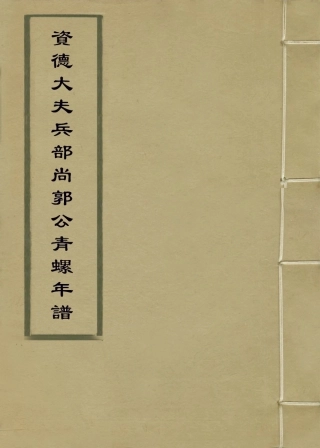 資德大夫兵部尚郭公青螺年譜